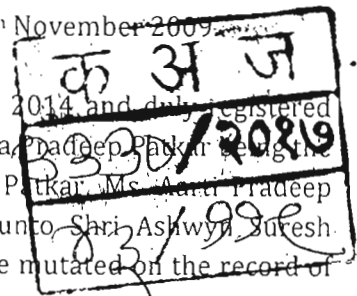 November 2009.
क अ ज
2014 and duly registered
a Pradeep Patkar being the
३३३०/२०१७
Patkar, Ms. Aarti Pradeep
unto Shri Ashwyn Suresh
४३/११९
e mutated on the record of